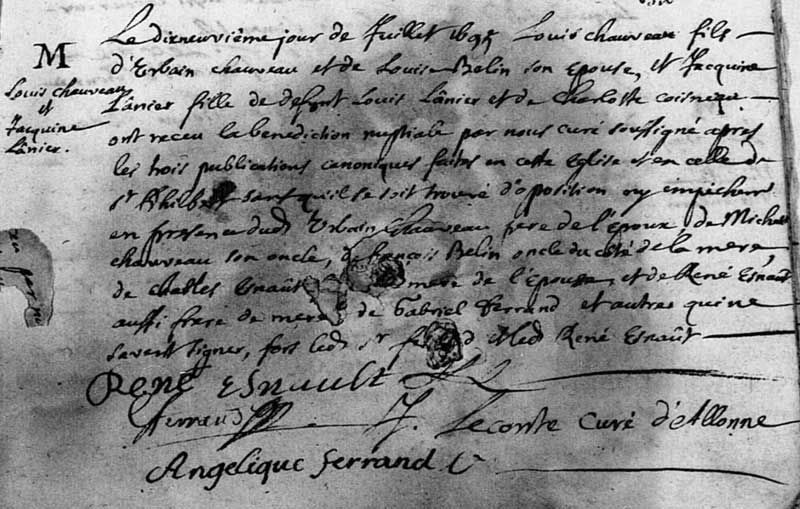 M
Louis Chauveau
et
Jacquine
Lânier.
Le dixneuvième jour de Juillet 1695 Louis chauveau fils
d'Urbain chauveau et de Louise Belin son Epouse, et Jacquine
Lânier fille de defunt Louis Lânier et de Charlotte coisneau
ont receu la benediction nuptiale par nous curé soussigné apres
les trois publications canoniques faites en cette Eglise et en celle de
st Philbert sans qu'il se soit trouvé d'oposition ny empéchem
en presence dud Urbain Chauveau pere de l'époux, de Michel
chauveau son oncle, de françois Belin oncle du côté de la mere,
de charles Esnaût mere de l'Epouse, et de René Esnaût
aussi frere de mere de Gabriel Ferrand et autres qui ne
savent signer, fors led sr ferrand et led René Esnaût
René Esnault
Ferrand J. Leconte Curé d'Allonne
Angelique Ferrand